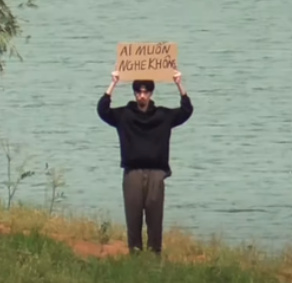 AI MUỐN
NGHE KHÔNG